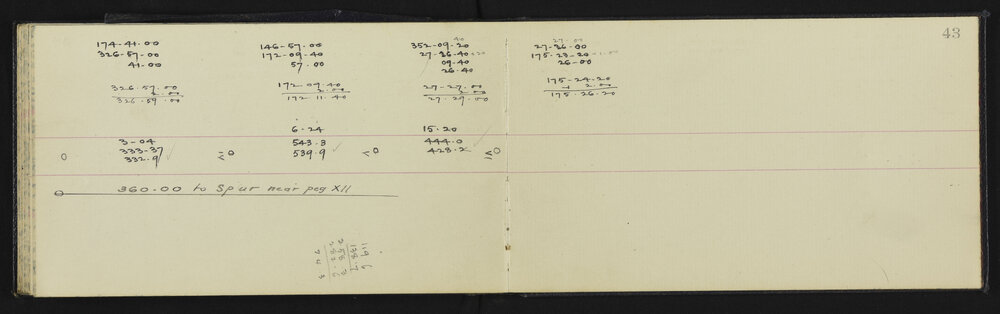 43
174-41-00
326-57-00
41-00
326.57.00
2.00
326.59.00
146-57.00
172-09-40
57.00
172 09.40
2.00
172.11.40
40
352-09-20
27-26-40
09-40
26-40
27-27.00
2.00
27.29.00
27-26-00
175-23-20
26-00
175-24.20
2.00
175.26.20
3-04
333-37
332.9
6.24
543.3
539.9
15.20
444.0
423.2
360.00 to Spur near peg XII
119 6
138.7
258 3
282 6
24 3